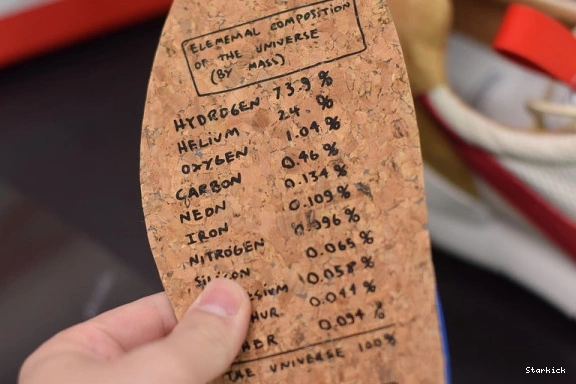 ELEMENAL COMPOSITION
OF THE UNIVERSE
(BY MASS)
HYDROGEN 73.9 %
HELIUM 24 %
OXYGEN 1.04 %
CARBON 0.46 %
NEON 0.134 %
IRON 0.109 %
NITROGEN 0.096 %
SILICON 0.065 %
ESIUM 0.058 %
HUR 0.044 %
HER 0.094 %
THE UNIVERSE 100%
Starkick